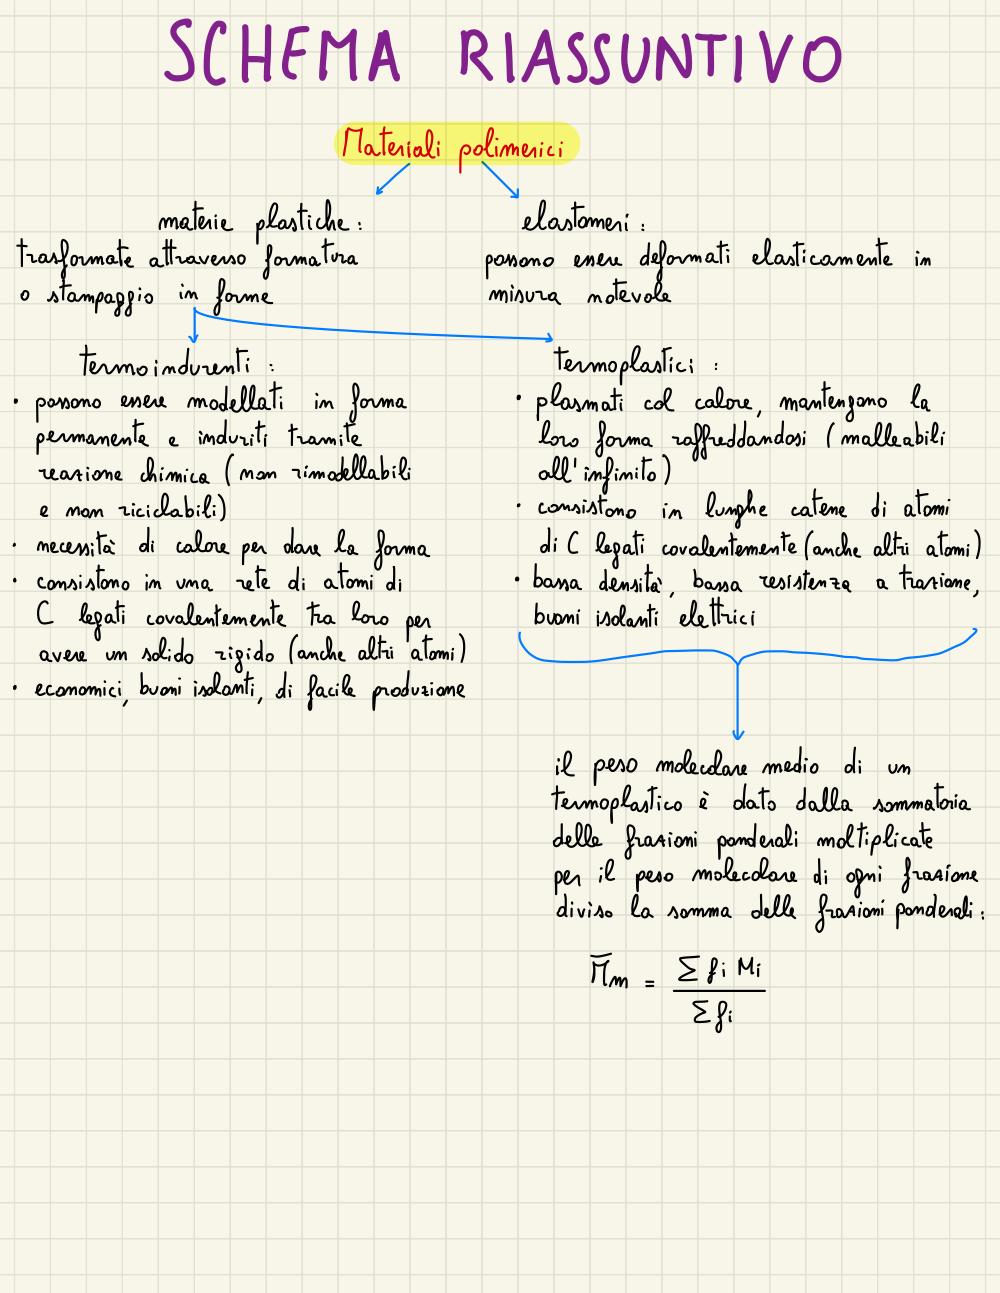 SCHEMA RIASSUNTIVO
Materiali polimerici
materie plastiche:
trasformate attraverso formatura
o stampaggio in forme
elastomeri:
possono essere deformati elasticamente in
misura notevole
termoindurenti:
• possono essere modellati in forma
permanente e induriti tramite
reazione chimica (non rimodellabili
e non riciclabili)
• necessità di calore per dare la forma
• consistono in una rete di atomi di
C legati covalentemente tra loro per
avere un solido rigido (anche altri atomi)
• economici, buoni isolanti, di facile produzione
termoplastici:
• plasmati col calore, mantengono la
loro forma raffreddandosi (malleabili
all'infinito)
• consistono in lunghe catene di atomi
di C legati covalentemente (anche altri atomi)
• bassa densità, bassa resistenza a trazione,
buoni isolanti elettrici
il peso molecolare medio di un
termoplastico è dato dalla sommatoria
delle frazioni ponderali moltiplicate
per il peso molecolare di ogni frazione
diviso la somma delle frazioni ponderali:
M̅m = Σ fi Mi
Σ fi